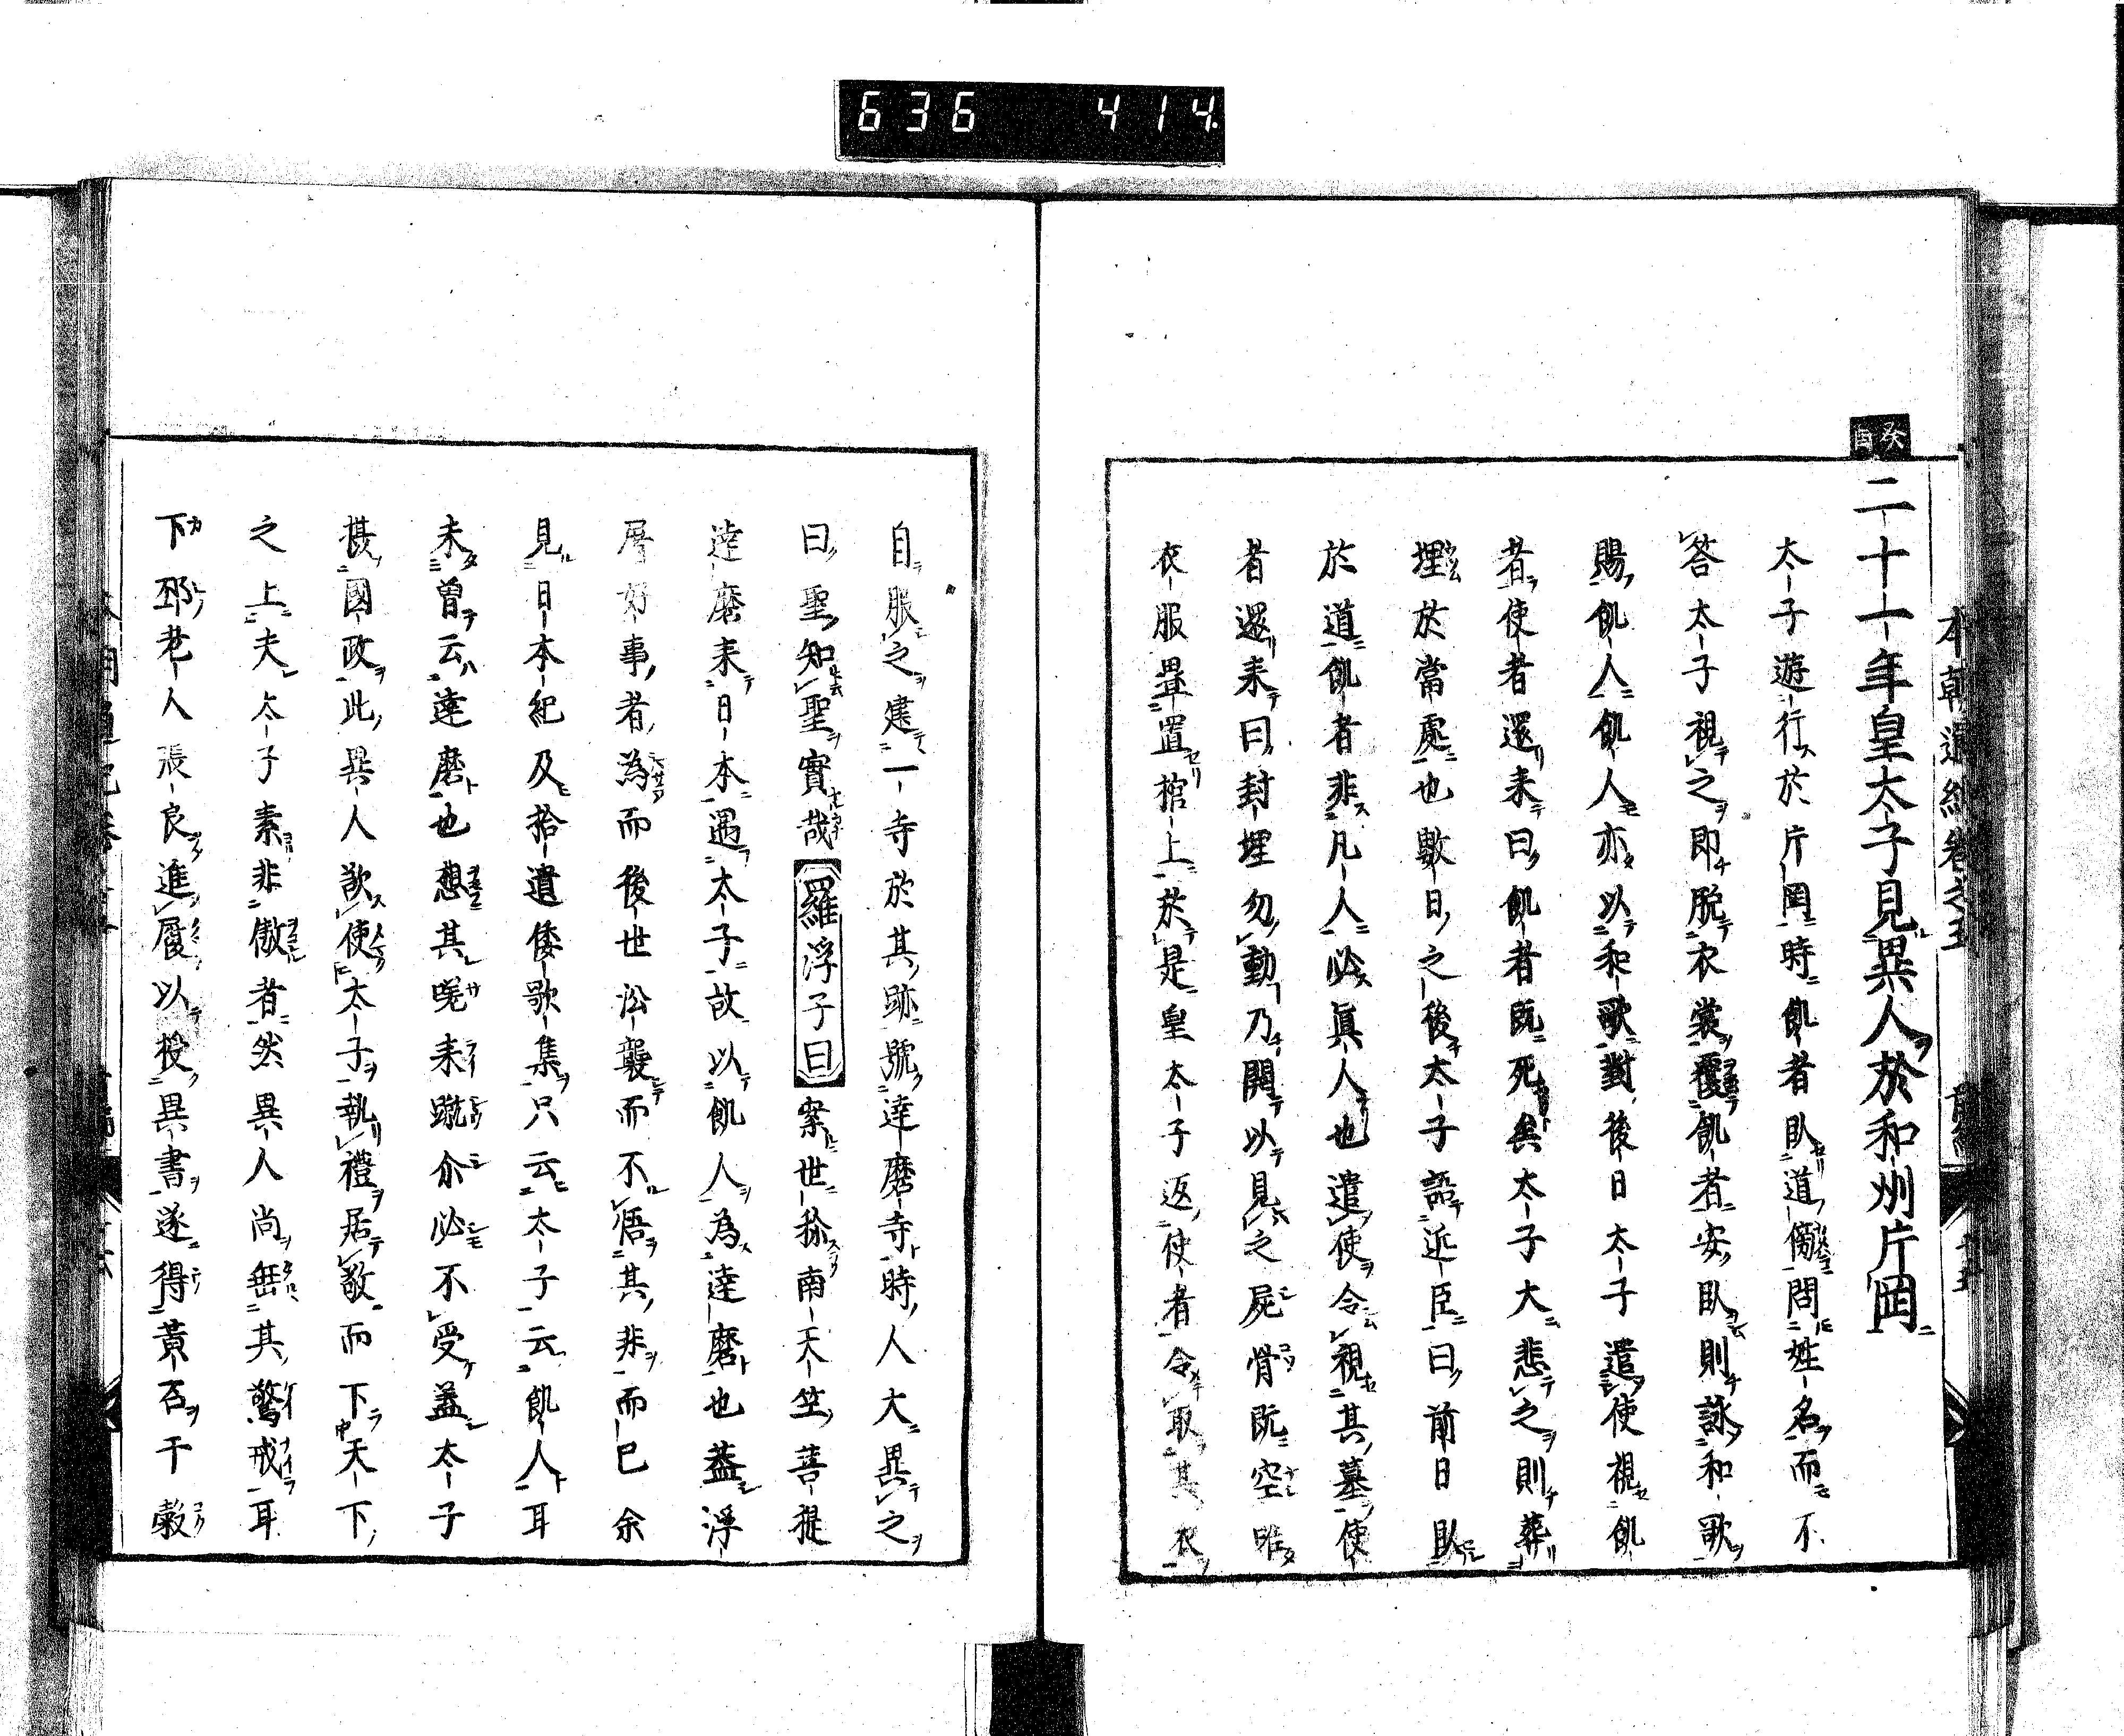 636 414
本朝通紀卷之五 前編
癸酉
二十一年皇太子見異人於和州片罔
太子遊行於片罔時飢者臥道傍問姓名而不
答太子視之即脫衣裳覆飢者安臥則詠和歌
賜飢人飢人亦以和歌對後日太子遣使視飢
者使者還来曰飢者既死矣太子大悲之則葬
埋於當處也數日之後太子語近臣曰前日臥
於道飢者非凡人必眞人也遣使令視其墓使
者還来曰封埋勿動乃開以見之屍骨既空唯
衣服疊置棺上於是皇太子返使者令取其衣
自服之建一寺於其跡號達磨寺時人大異之
曰聖知聖實哉羅浮子曰案世称南天竺菩提
達磨来日本遇太子故以飢人為達磨也蓋浮
屠好事者為而後世訟襲而不悟其非而已余
見日本紀及拾遺倭歌集只云太子云飢人耳
未曽云達磨也想其嗟来蹴尒必不受盖太子
摂國政此異人欲使太子執禮居敬而下天下
之上夫太子素非傲者然異人尚無其驚戒耳
下邳老人張良進履以授異書遂得黃石干穀